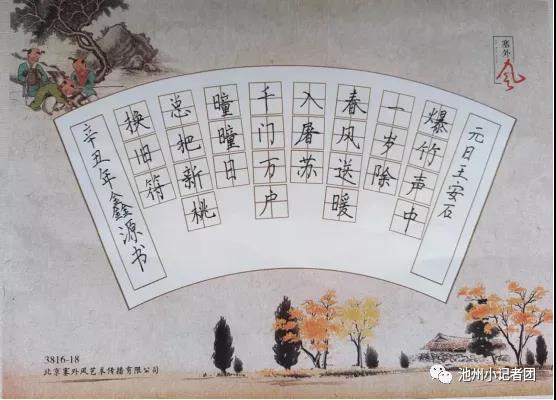 元日王安石
爆竹声中
一岁除
春风送暖
入屠苏
千门万户
曈曈日
总把新桃
换旧符
辛丑年鑫源书
塞外风
3816-18
北京塞外风艺术传播有限公司
池州小记者团